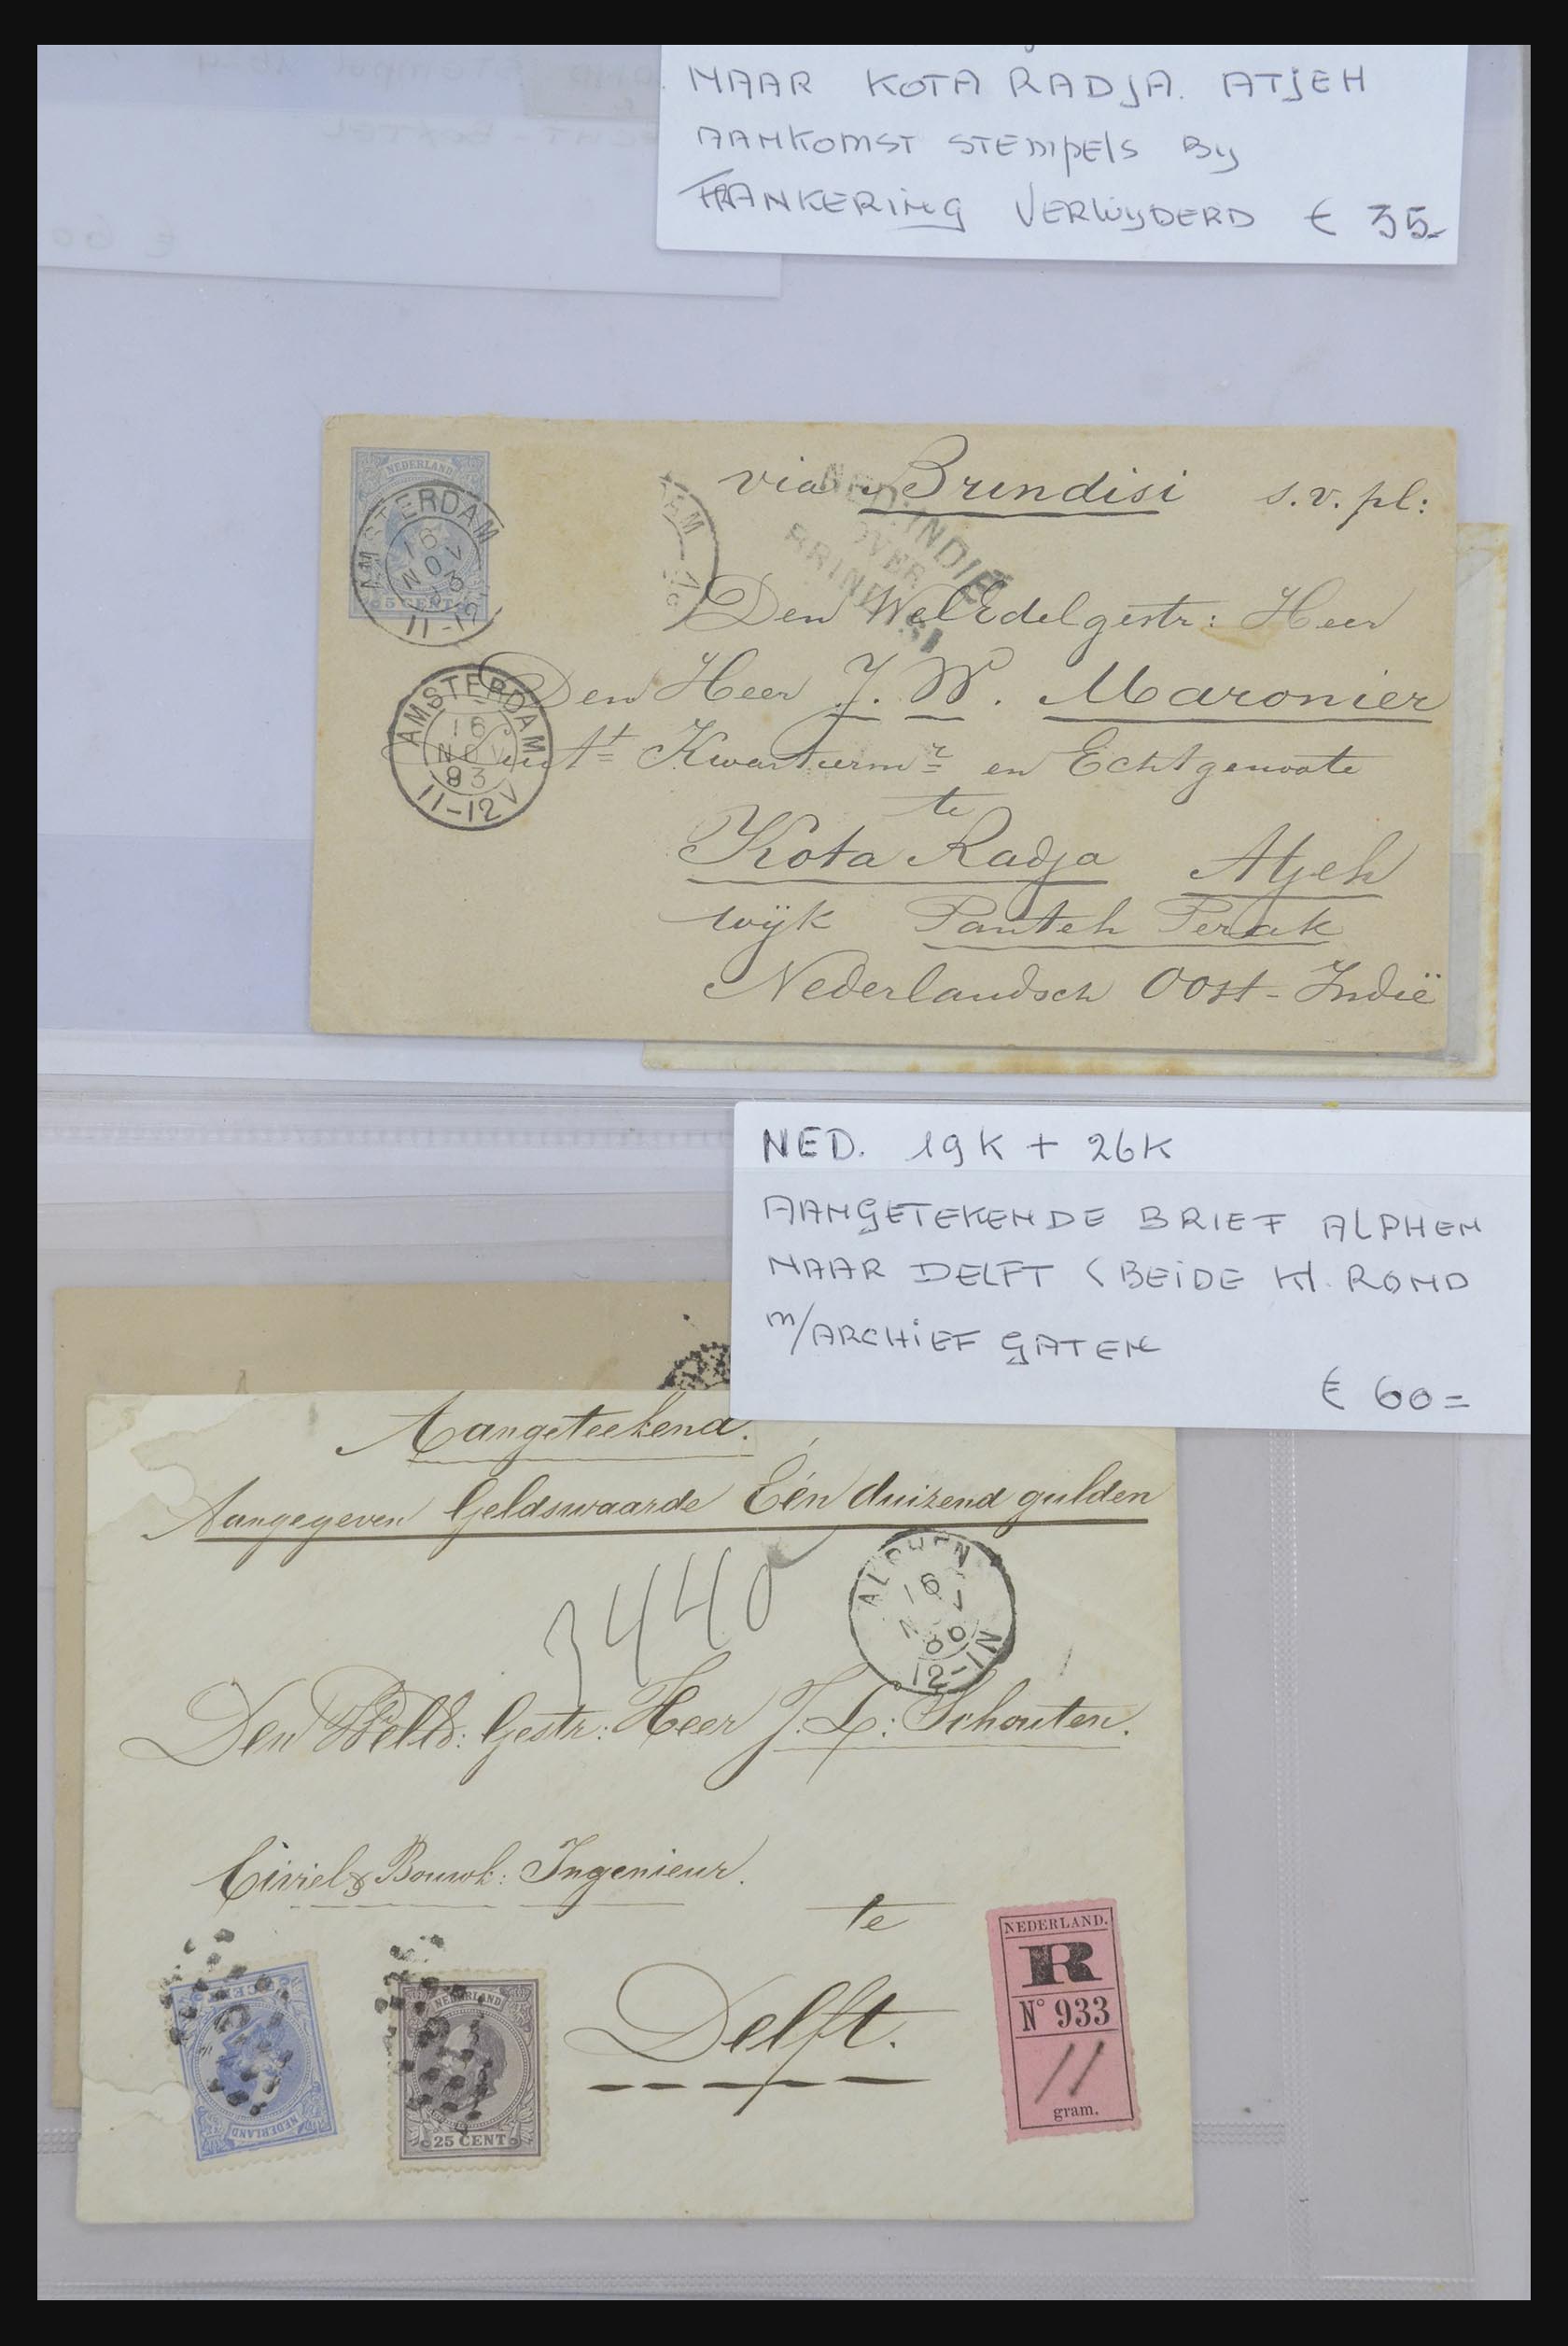 NAAR KOTA RADJA. ATJEH
AANKOMST STEMPELS BY
FRANKERING VERWYDERD € 35-
NEDERLAND
5 CENT
AMSTERDAM
16 V
NO
93
11-12
AM
NED-INDIË
OVER
BRINDISI
via Brindisi s.v.pl:
Den WelEdelgestr: Heer
Den Heer J. W. Maronier
Kwartiermr en Echtgenoote
te
Kota Radja Atjeh
wijk Panteh Perak
Nederlandsch Oost-Indië
AMSTERDAM
16
NOV
93
11-12V
NED. 19K + 26K
AANGETEKENDE BRIEF ALPHEN
NAAR DELFT (BEIDE Kl. ROND
m/ARCHIEF GATEN
€ 60=
Aangeteekend.
Aangegeven Geldswaarde Één duizend gulden
3440
ALPHEN
16
12-1N
Den WelEd: Gestr: Heer J. L: Schouten.
Civiel & Bouwk: Ingenieur.
te
Delft.
CENT
NEDERLAND
NEDERLAND
25 CENT
NEDERLAND.
R
N° 933
11
gram.